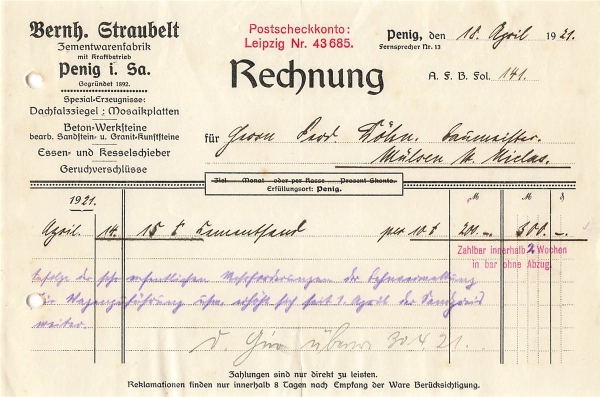 Bernh. Straubelt
Zementwarenfabrik
mit Kraftbetrieb
Penig i. Sa.
Gegründet 1892.
Spezial-Erzeugnisse:
Dachfalzziegel; Mosaikplatten
Beton-Werksteine
bearb. Sandstein- u. Granit-Kunststeine
Essen- und Kesselschieber
Geruchverschlüsse
Postscheckkonto:
Leipzig Nr. 43685.
Penig, den 18. April 1921.
Fernsprecher Nr. 13
Rechnung
A. F. B. Fol. 141.
für Herrn Ferd. Döhn, Baumeister.
Mülsen St. Niclas.
Ziel Monat oder per Kasse Prozent Skonto.
Erfüllungsort: Penig.
1921. M M ₰
April. 14. 15 t Zementsand per 10 t 200.— 300.—.
Zahlbar innerhalb 2 Wochen
in bar ohne Abzug.
der
seit 1. April der
weiter.
d. Giro 30.4.21.
Zahlungen sind nur direkt zu leisten.
Reklamationen finden nur innerhalb 8 Tagen nach Empfang der Ware Berücksichtigung.